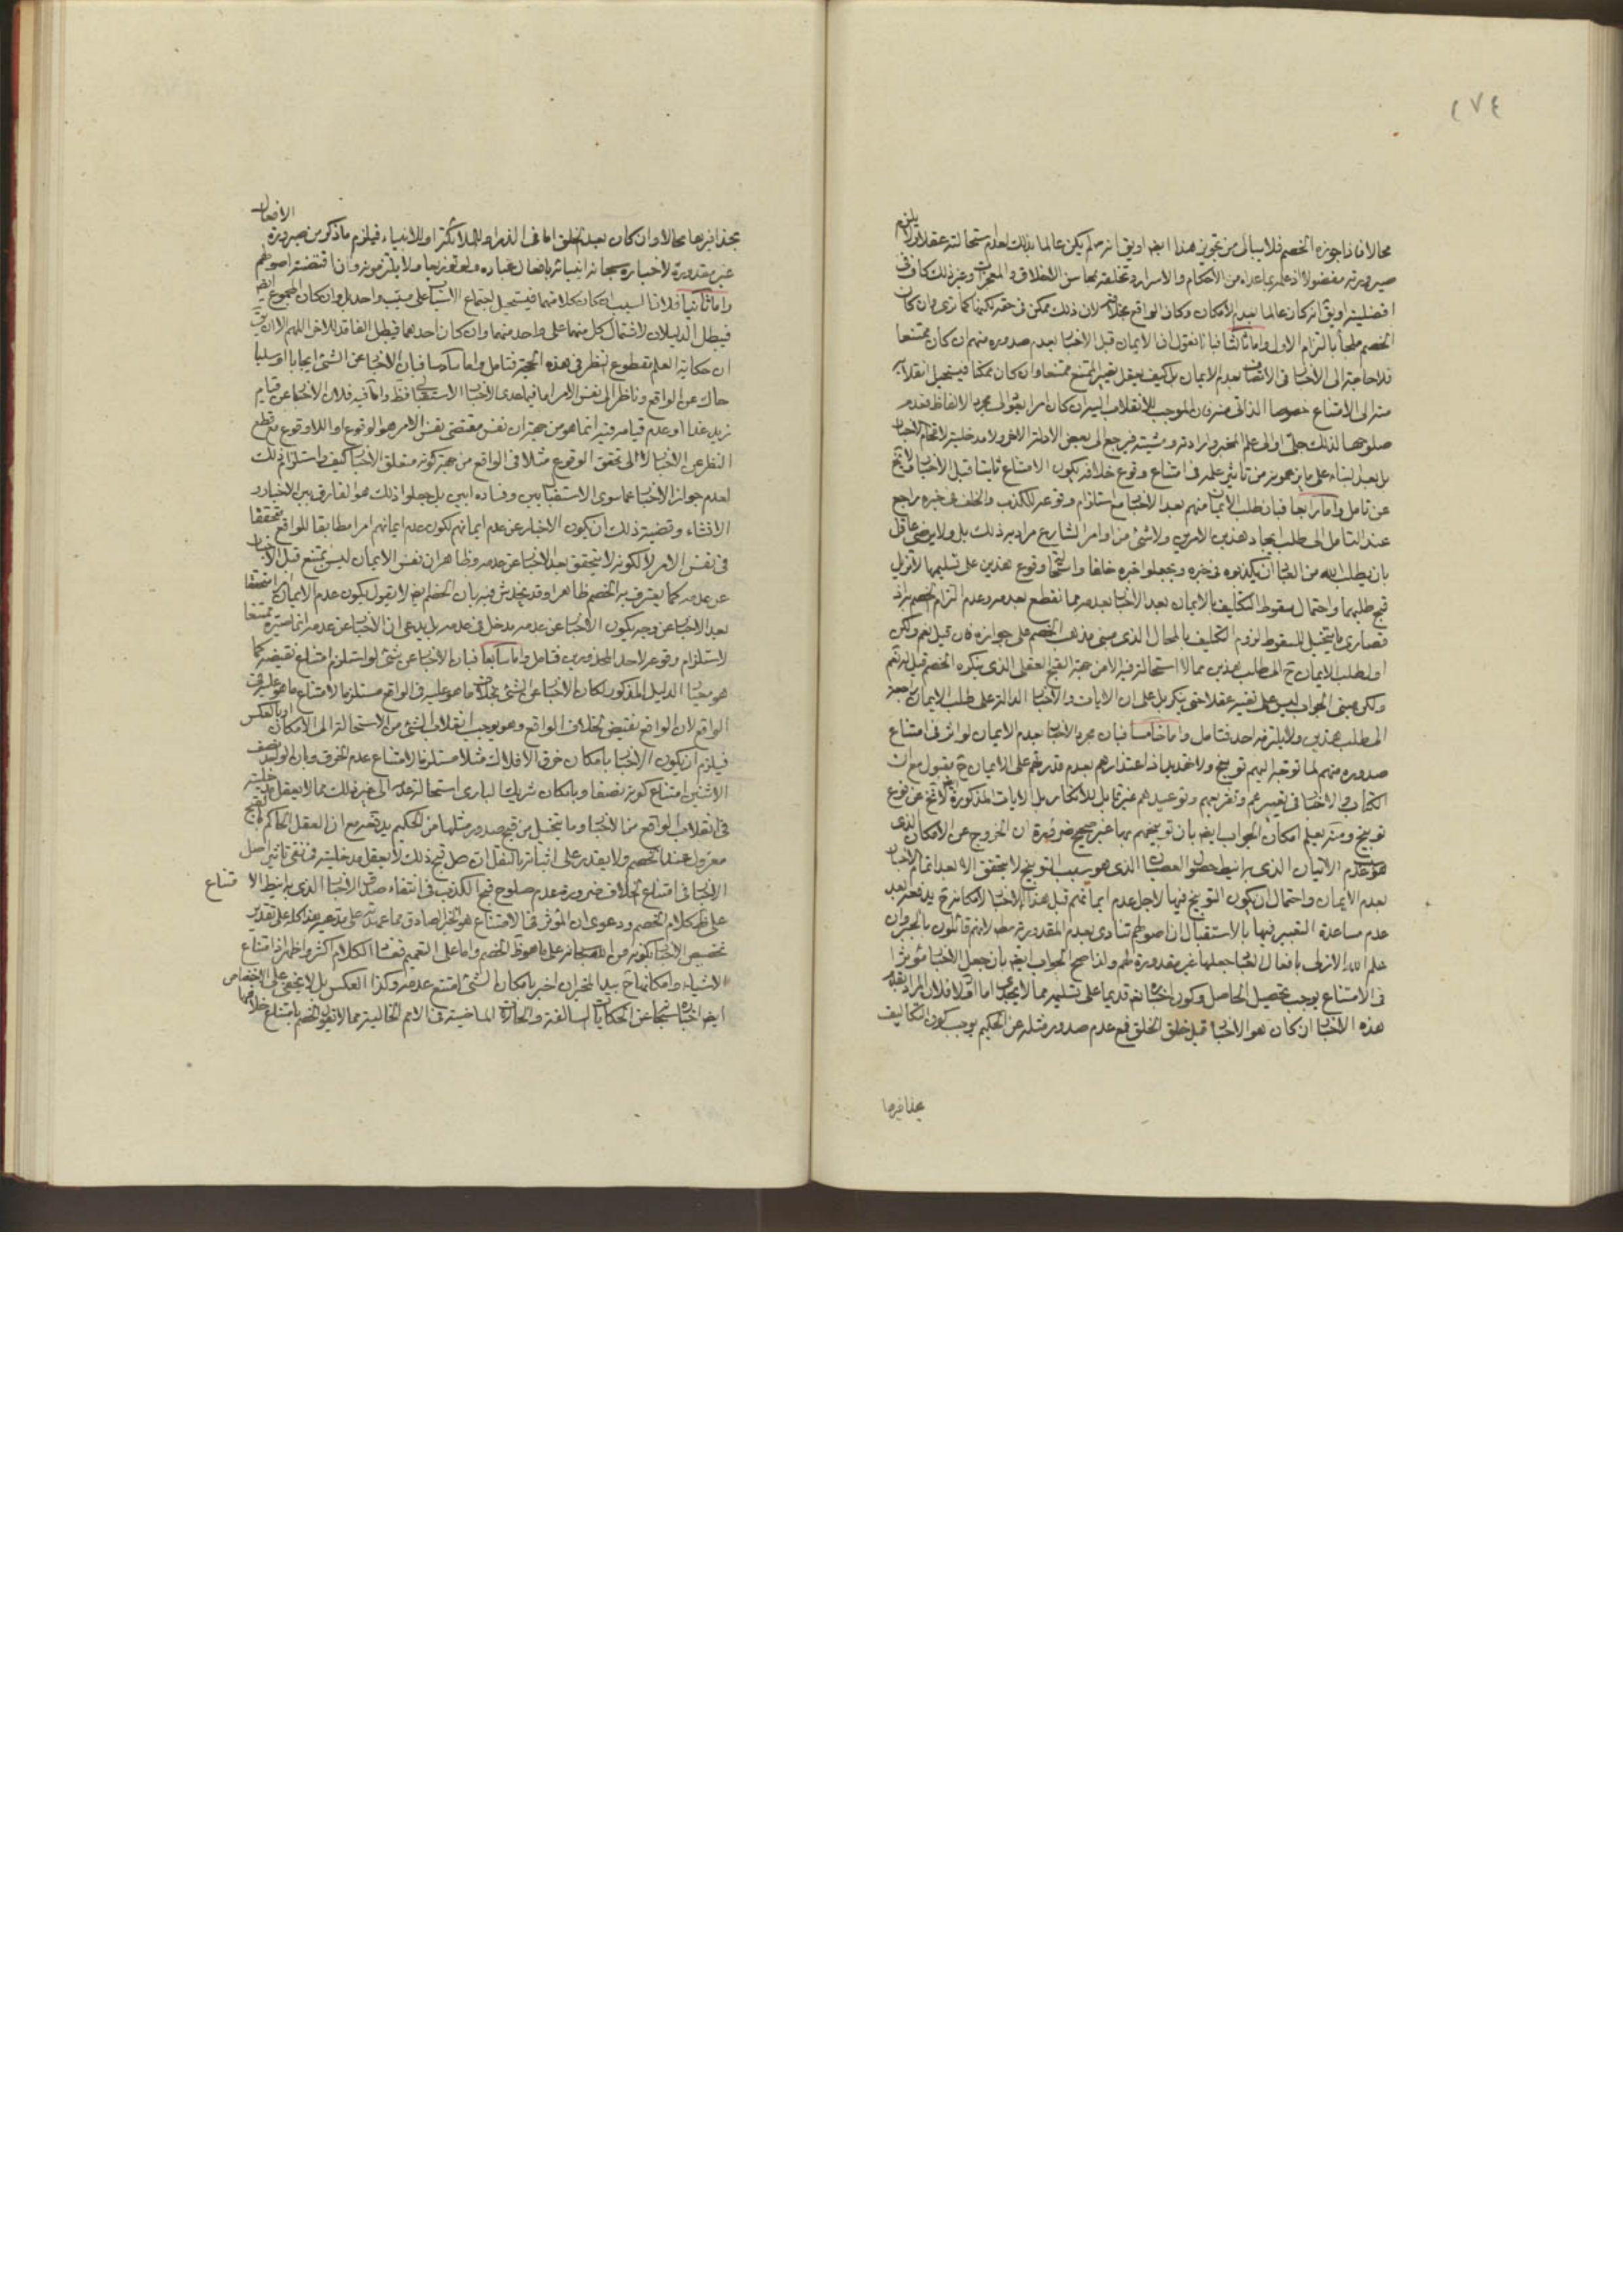 ٢٧٤
محالا فاذا جوزه الخصم فلا يبالى من تجويز هذا ايضا او يق انه لم يكن عالما بذلك لعدم استحالته عقلا ولا يلزم
صيرورته مفضولا اذ علمه بما عداه من الاحكام والاسرار وتخلقه بمحاسن الاخلاق والمعجزات وغير ذلك كاف فى
افضليته او يق انه كان عالما بعدم الامكان وكان الواقع بخلافه لان ذلك ممكن فى حقه لكنها كما ترى وان كان
الخصم ملجأ بالتزام الاول واما ثالثا فبانا نقول ان الايمان قبل الاخبار بعدم صدوره منهم ان كان ممتنعا
فلا حاجة الى الاخبار فى الاتصاف بعدم الايمان بل كيف يعقل تغيير الممتنع ممتنعا وان كان ممكنا فيستحيل انقلابه
منه الى الامتناع خصوصا الذاتى منه فان الموجب للانقلاب اليه ان كان امرا يؤل الى مجرد الالفاظ فعدم
صلوحها لذلك جلى او الى علم المخبر وارادته ومشيته فيرجع الى بعض الادلة الاخر ولا مدخلية لاقحام الاخبار
بل بعد البناء على ما يزعمونه من تأثير علمه فى امتناع وقوع خلافه يكون الامتناع ثابتا قبل الاخبار فلا تخ
عن تامل واما رابعا فبان طلب الايمان منهم بعد الاخبار مع استلزام وقوعه للكذب والخلف فى خبره راجع
عند التامل الى طلب ايجاد هذين الامرين ولا شئ من اوامر الشارع مراد به ذلك بل ولا يرضى عاقل
بان يطلب الله من العباد ان يكذبوه فى خبره ويجعلوا خبره خلفا واستحالة وقوع هذين على تسليمها لا تزيل
قبح طلبهما واحتمال سقوط التكليف بالايمان بعد الاخبار بعدمه مما نقطع بعدمه وعدم التزام الخصم به اذ
قصارى ما يتخيل للسقوط لزوم التكليف بالمحال الذى مبنى مذهب الخصم على جوازه فان قيل نعم ولكن
اول طلب الايمان ح الى طلب هذين مما لا استحالة فيه الا من جهة القبح العقلى الذى ينكره الخصم قيل له نعم
ولكن مبنى الجواب ليس على تقبيحه عقلا حتى ينكر بل على ان الايات والاخبار الدالة على طلب الايمان راجعة
الى طلب هذين ولا يلتزمه احد فتامل واما خامسا فبان مجرد الاخبار بعدم الايمان لو اثر فى امتناع
صدوره منهم لما توجه اليهم توبيخ ولا تهديد اذ اعتذارهم بعدم قدرتهم على الايمان ح مقبول مع ان
الكتاب والاخبار فى تعييرهم وتقريعهم وتوعيدهم غير قابل للانكار بل الايات المذكورة ايضا لا تخ عن نوع
توبيخ ومنه يعلم امكان الجواب ايضا بان توبيخهم بها غير صحيح ضرورة ان الخروج عن الامكان الذى
هو عدم الاتيان الذى به انيط حصول العصيان الذى هو سبب التوبيخ لا يتحقق الا بعد اتمام الاخبار
بعدم الايمان واحتمال ان يكون التوبيخ فيها لاجل عدم ايمانهم قبل هذا الاخبار لامكانه ح يدفعه بعد
عدم مساعدة التعبير فيها بالاستقبال ان اصولهم تنادى بعدم المقدورية مطلقا لانهم قائلون بالجبر وان
علم الله الازلى بافعال العباد جعلها غير مقدورة لهم ولذا صح الجواب ايضا بان جعل الاخبار مؤثرا
فى الامتناع يوجب تحصيل الحاصل وكون اخباره تع قديما على تسليمه مما لا يجدى اما اولا فلان المراد بقدم
هذه الاخبار ان كان هو الاخبار قبل خلق الخلق فمع عدم صدور مثله عن الحكيم يوجب كون التكاليف
بحذافيرها
بحذافيرها محالا وان كان بعد الخلق اما فى الذر او للملائكة او للانبياء فيلزم ما ذكر من صيرورة الافعال
غير مقدورة لاخباره سبحانه انبيائه بافعال عباده ولو توزيعا ولا يلتزمونه وان اقتضته اصولهم
واما ثانيا فلان السبب ان كان كلا منهما فيستحيل اجتماع الاسباب على مسبب واحد بل وان كان المجموع ايضا
فيبطل الدليلان لاشتمال كل منهما على واحد منهما وان كان احدهما فيبطل الفاقد للاخر اللهم الا ان يق
ان حكاية العلم مقطوع النظر فى هذه الحجة فتامل واما سادسا فبان الاخبار عن الشئ ايجابا او سلبا
حاك عن الواقع وناظر الى نفس الامر اما فيما عدى الاخبار الاستقبالى فظ واما فيه فلان الاخبار عن قيام
زيد غدا او عدم قيامه فيه انما هو من جهة ان نفس مقتضى نفس الامر هو الوقوع او اللاوقوع مع قطع
النظر عن الاخبار لا الى تحقق الوقوع مثلا فى الواقع من جهة كونه متعلق الاخبار كيف واستلزام ذلك
لعدم جواز الاخبار عما سوى الاستقباليين وفساده ابين بل جعلوا ذلك هو الفارق بين الاخبار و
الانشاء وقضية ذلك ان يكون الاخبار عن عدم ايمانهم لكون عدم ايمانهم امرا مطابقا للواقع متحققا
فى نفس الامر لا لكونه لا يتحقق بعد الاخبار عن عدمه وظاهر ان نفس الايمان ليس بممتنع قبل الاخبار
عن عدمه كما يعترف به الخصم ظاهرا وقد يخدش فيه بان الخصم ايضا لا يقول بكون عدم الايمان امرا متحققا
بعد الاخبار عن وجه يكون الاخبار عن عدمه مدخل فى عدمه بل يدعى ان الاخبار عن عدمه انما صيره ممتنعا
لاستلزام وقوعه لاحد المحذورين فتامل واما سابعا فبان الاخبار عن شئ لو استلزم امتناع نقيضه كما
هو مبنى الدليل المذكور لكان الاخبار عن الشئ بخلاف ما هو عليه فى الواقع مستلزما لامتناع ما هو عليه فى
الواقع لان الواقع نقيض لخلاف الواقع وهو يوجب انقلاب الشئ من الاستحالة الى الامكان او بالعكس
فيلزم ان يكون الاخبار بامكان خرق الافلاك مثلا مستلزما لامتناع عدم الخرق وبان الواحد نصف
الاثنين امتناع كونه نصفا وبامكان شريك البارى استحالة عدمه الى غير ذلك مما لا يعقل مدخليته
فى انقلاب الواقع من الاخبار وما يتخيل من قبح صدور مثلها من الحكيم يدفعه مع ان العقل الحاكم بالقبح
معزول عند الخصم ولا يقدر على اثباته بالنقل ان صل قبح ذلك لا يعقل مدخليته فى نفى تاثير اصل
الاخبار فى امتناع الخلاف ضرورة عدم صلوح قبح الكذب فى انتفاء صدق الاخبار الذى به انيط الامتناع
على ظ كلام الخصم ودعوى ان المؤثر فى الامتناع هو الخبر الصادق مما عهدته على مدعيه هذا كله على تقدير
تخصيص الاخبار بكونه من الله سبحانه على ما هو ظ الخصم واما على التعميم ففساد الكلام اكثر واظهر اذ امتناع
الاشياء وامكانها ح بيد المخبر ان اخبر بامكان الشئ امتنع عدمه وكذا العكس بل لا يخفى على
ايضا اخباره سبحانه عن الحكايات السالفة والحالات الماضية فى الامم الخالية مما لا يقول الخصم بامتناع خلافها